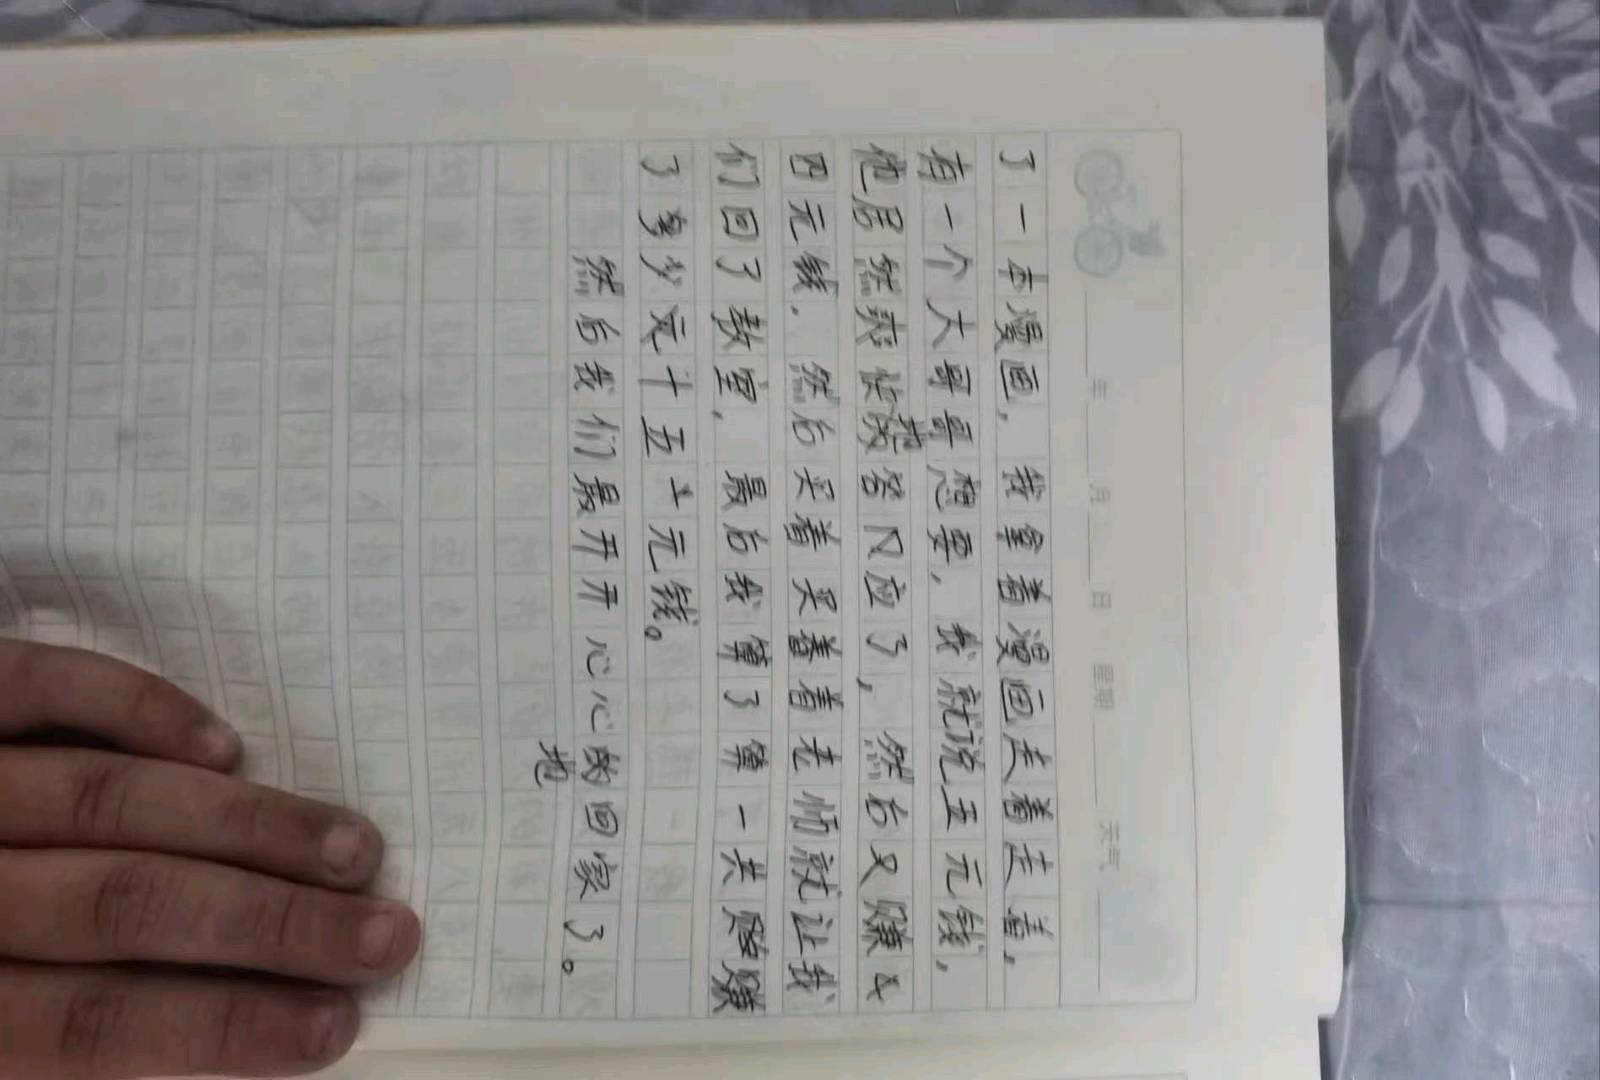 年 月 日 星期 天气
了一本漫画，我拿着漫画走着走着，
有一个大哥哥想要，我就说五元钱，
他居然爽快答应了，然后又赚
四元钱．然后买着买着着老师就让我
们回了教室，最后我算了算一共赚
了多少元十五元钱。
然后我们最开开心心的回家了。
地